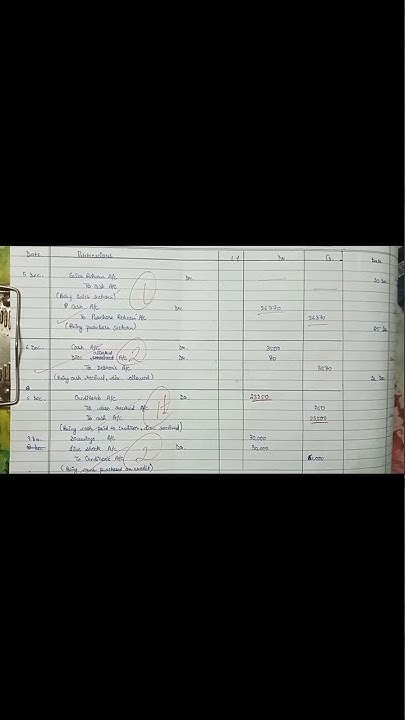 Date Particulars L.F Dr. Cr. Date
5 Dec. Sales Return A/c Dr.
To Cash A/c
(Being Sales return)
Cash A/c Dr. 26370
To Purchase Return A/c 26370
(Being purchase return)
6 Dec. Cash A/c Dr. 3500
allowed
Disc received A/c Dr. 80
To Debtors A/c 3580
(Being cash received, disc allowed)
6 Dec. Creditors A/c Dr. 23350
To disc received A/c 350
To cash A/c 23,000
(Being cash paid to creditor, disc received)
Drawings A/c 30,000
A/c Dr. 30,000
To Creditors A/c
(Being purchased on credit)